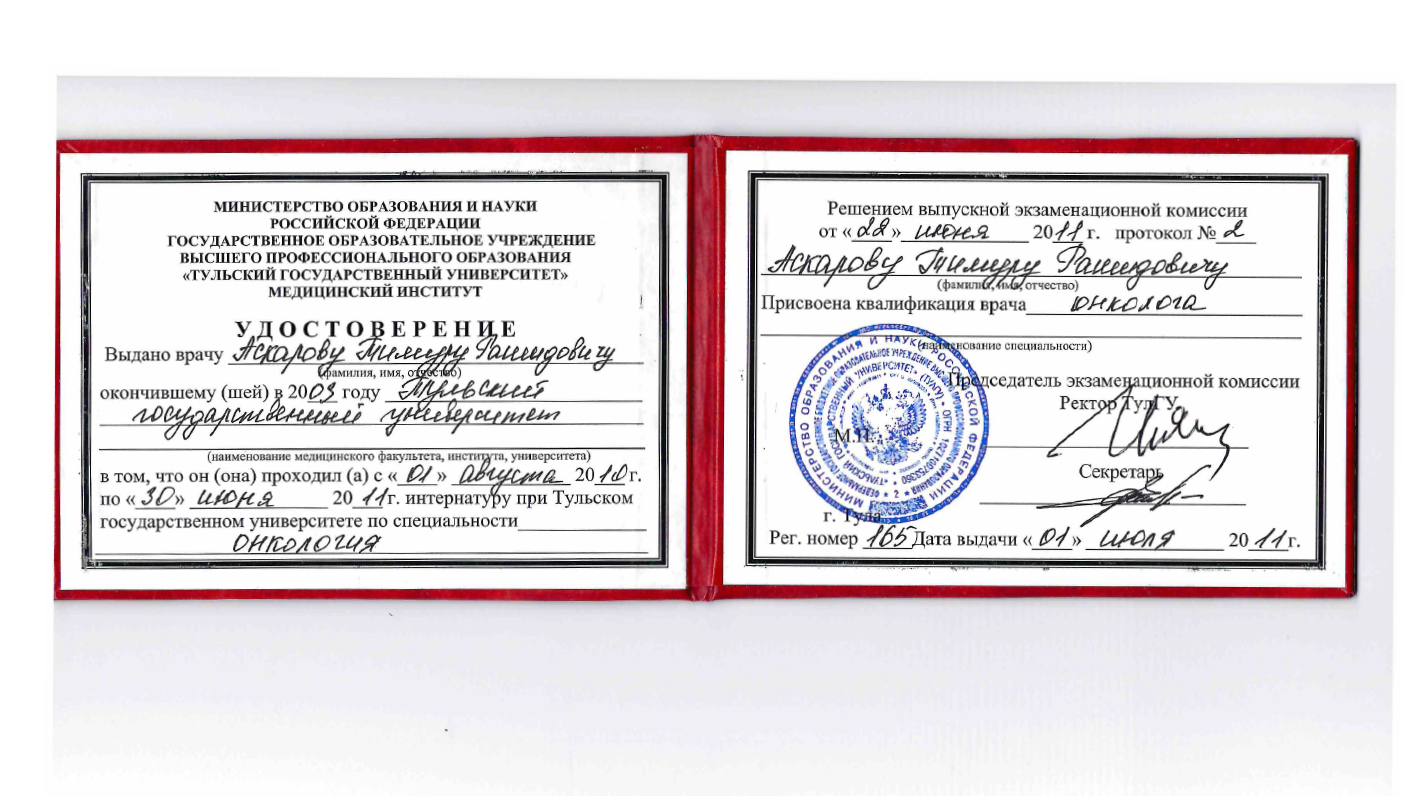 МИНИСТЕРСТВО ОБРАЗОВАНИЯ И НАУКИ
РОССИЙСКОЙ ФЕДЕРАЦИИ
ГОСУДАРСТВЕННОЕ ОБРАЗОВАТЕЛЬНОЕ УЧРЕЖДЕНИЕ
ВЫСШЕГО ПРОФЕССИОНАЛЬНОГО ОБРАЗОВАНИЯ
«ТУЛЬСКИЙ ГОСУДАРСТВЕННЫЙ УНИВЕРСИТЕТ»
МЕДИЦИНСКИЙ ИНСТИТУТ
УДОСТОВЕРЕНИЕ
Выдано врачу Аскарову Тимуру Рашидовичу
(фамилия, имя, отчество)
окончившему (шей) в 2003 году Тульский
государственный университет
(наименование медицинского факультета, института, университета)
в том, что он (она) проходил (а) с «01» августа 2010г.
по «30» июня 2011г. интернатуру при Тульском
государственном университете по специальности
онкология
Решением выпускной экзаменационной комиссии
от «28» июня 2011 г. протокол № 2
Аскарову Тимуру Рашидовичу
(фамилия, имя, отчество)
Присвоена квалификация врача онколога
(наименование специальности)
Председатель экзаменационной комиссии
Ректор ТулГУ
М.П.
Секретарь
г. Тула
Рег. номер 165 Дата выдачи «01» июля 2011г.
МИНИСТЕРСТВО ОБРАЗОВАНИЯ И НАУКИ РОССИЙСКОЙ ФЕДЕРАЦИИ